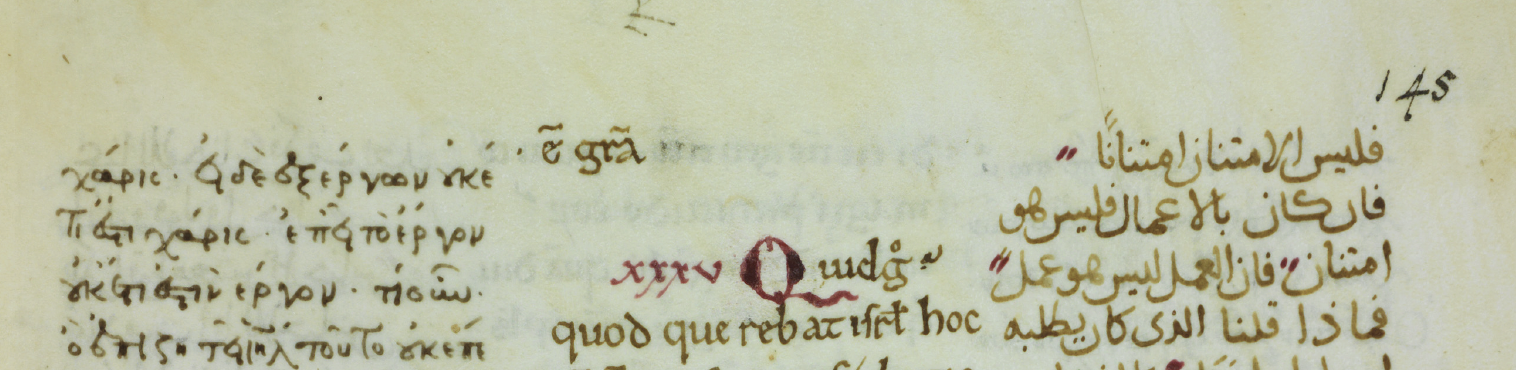 145
χάρις· εἰ δὲ ἐξ ἔργων οὐκέ
τι ἐστι χάρις· ἐπεὶ τὸ ἔργον
οὐκέτι ἐστὶν ἔργον· τί οὖν·
ὃ ἐπιζητεῖ ἰη̅λ τοῦτο οὐκ ἐπέ
ē gr̄a
xxxv Quid g°
quod querebāt isrł hoc
فليس الامتنان امتنانًا
فان كان بالاعمال فليس هو
امتنان فان العمل ليس هو عمل
فما ذا قلنا الذى كان يطلبه